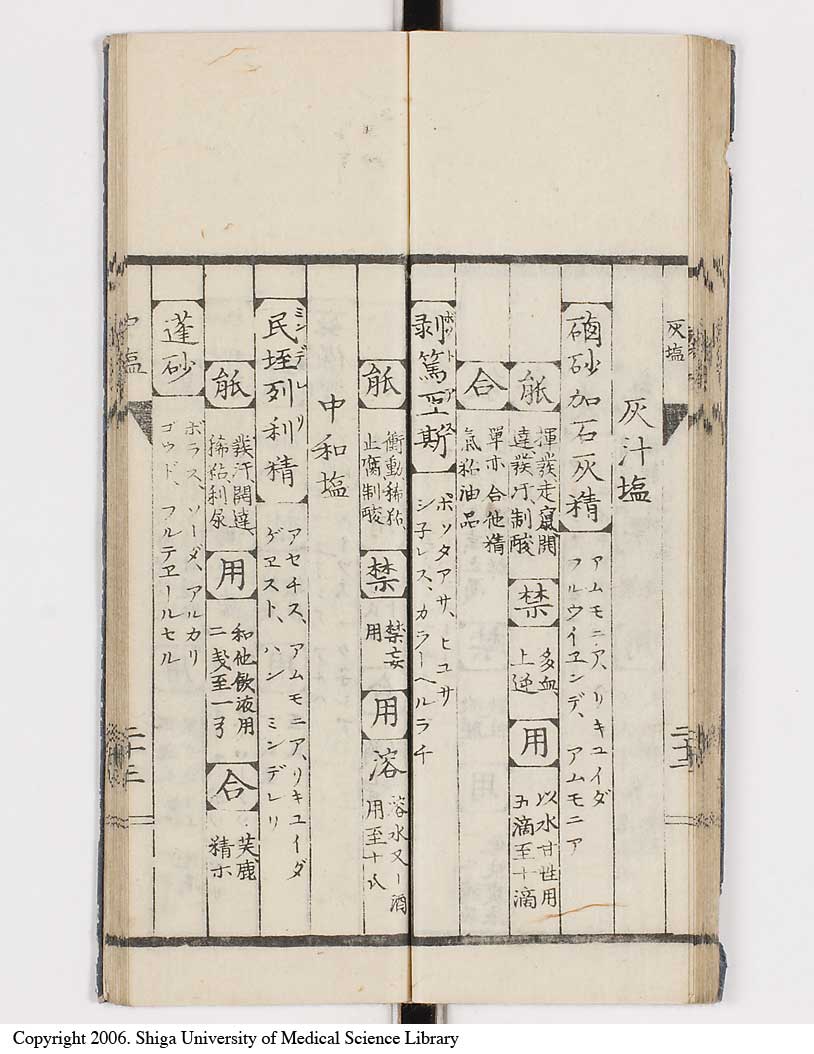 灰塩
灰汁塩
磠砂加石灰精
アムモニア、リキユイダ
フルウイエンデ、アムモニア
能
揮発走竄開
達発汗制酸
禁
多血
上逆
用
以水甘性用
五滴至十滴
合
単亦合他精
気粘油品
剥篤亜斯
ポット アス
ポツタアサ、ヒユサ
シ子レス、カラーヘルラチ
能
衝動稀粘
止腐制酸
禁
禁妄
用
用
溶
溶水又ハ酒
用至十八
中和塩
民垤列利精
ミンデレリ
アセチス、アムモニア、リキユイダ
ゲエスト、ハン ミンデレリ
能
発汗開達
稀粘利尿
用
和他飲液用
合
芙鹿
精ホ
蓬砂
ボラス、ソーダ、アルカリ
ゴウド、フルテエールセル
二十二
二十三
Copyright 2006. Shiga University of Medical Science Library